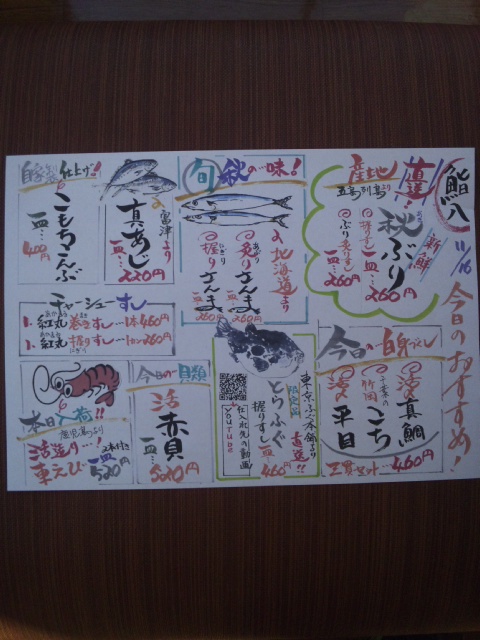 鮨八
11/16
今日のおすすめ!
産地直送!
五島列島より
新鮮
秋ぶり
握りすし
ぶり炙りすし
一皿…260円
旬 秋の一味!
北海道より
炙りさんま
一皿…260円
握りさんま
一皿…260円
富津より
真あじ
一皿…220円
自家製仕上げ!!
こもちこんぶ
一皿…400円
チャーシューすし
1、紅丸巻きすし…1本460円
1、紅丸握りすし…1カン260円
今日の白身づくし
活〆真鯛
千葉の竹岡こち
活〆平目
三貫セット…460円
東京ふぐ本舗より直送!!
限定品
とらふぐ
握りすし
一皿…460円
仕入れ先の動画!
YouTube
今日の貝類
活赤貝
一皿…520円
本日入荷!!
鹿児島より!
活造り
車えび
2本付き
一皿…520円